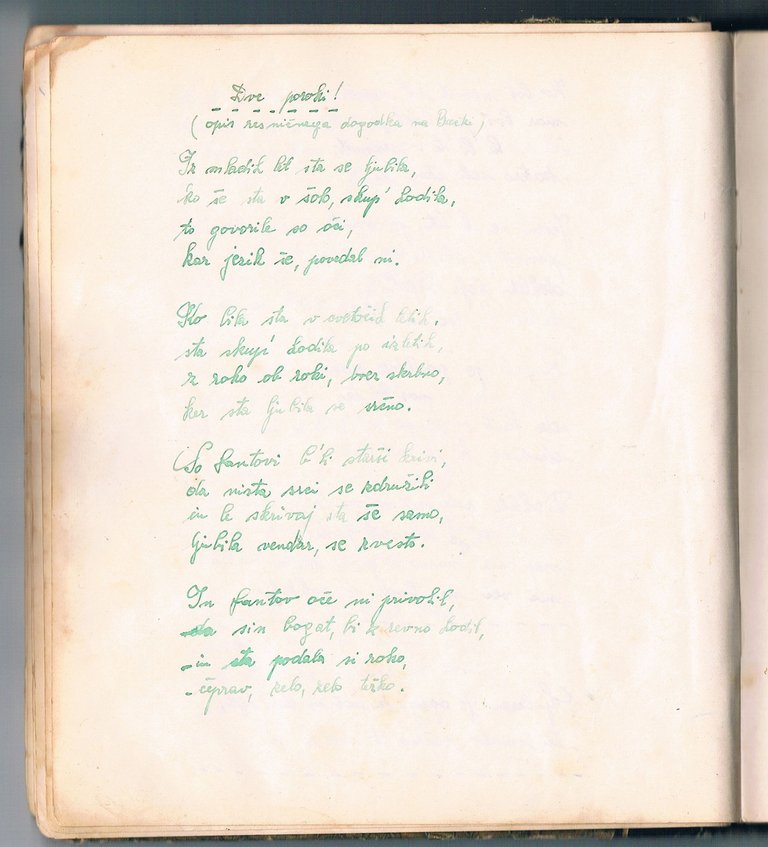 Dve poroki!
(opis resničnega dogodka na Barki)
Iz mladih let sta se ljubila,
ko še sta v šolo, skup' hodila,
to govorile so oči,
kar jezik še, povedal ni.
Ko bila sta v cvetočih letih,
sta skupi hodila po izletih,
z roko ob roki, brez skrbno,
ker sta ljubila se srčno.
(So fantovi b'li starši krivi,
da nista srci se združili
in le skrivaj sta še samo,
ljubila vendar, se zvesto.
In fantov oče ni privolil,
da sin bogat, bi z revno hodil,
- in sta podala si roko,
- čeprav, zelo, zelo težko.